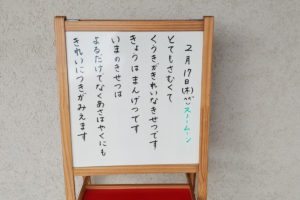 2月17日(木) スノームーン
とてもさむくて
くうきがきれいなきせつです
きょうはまんげつです
いまのきせつは
よるだけでなくあさはやくにも
きれいにつきがみえます